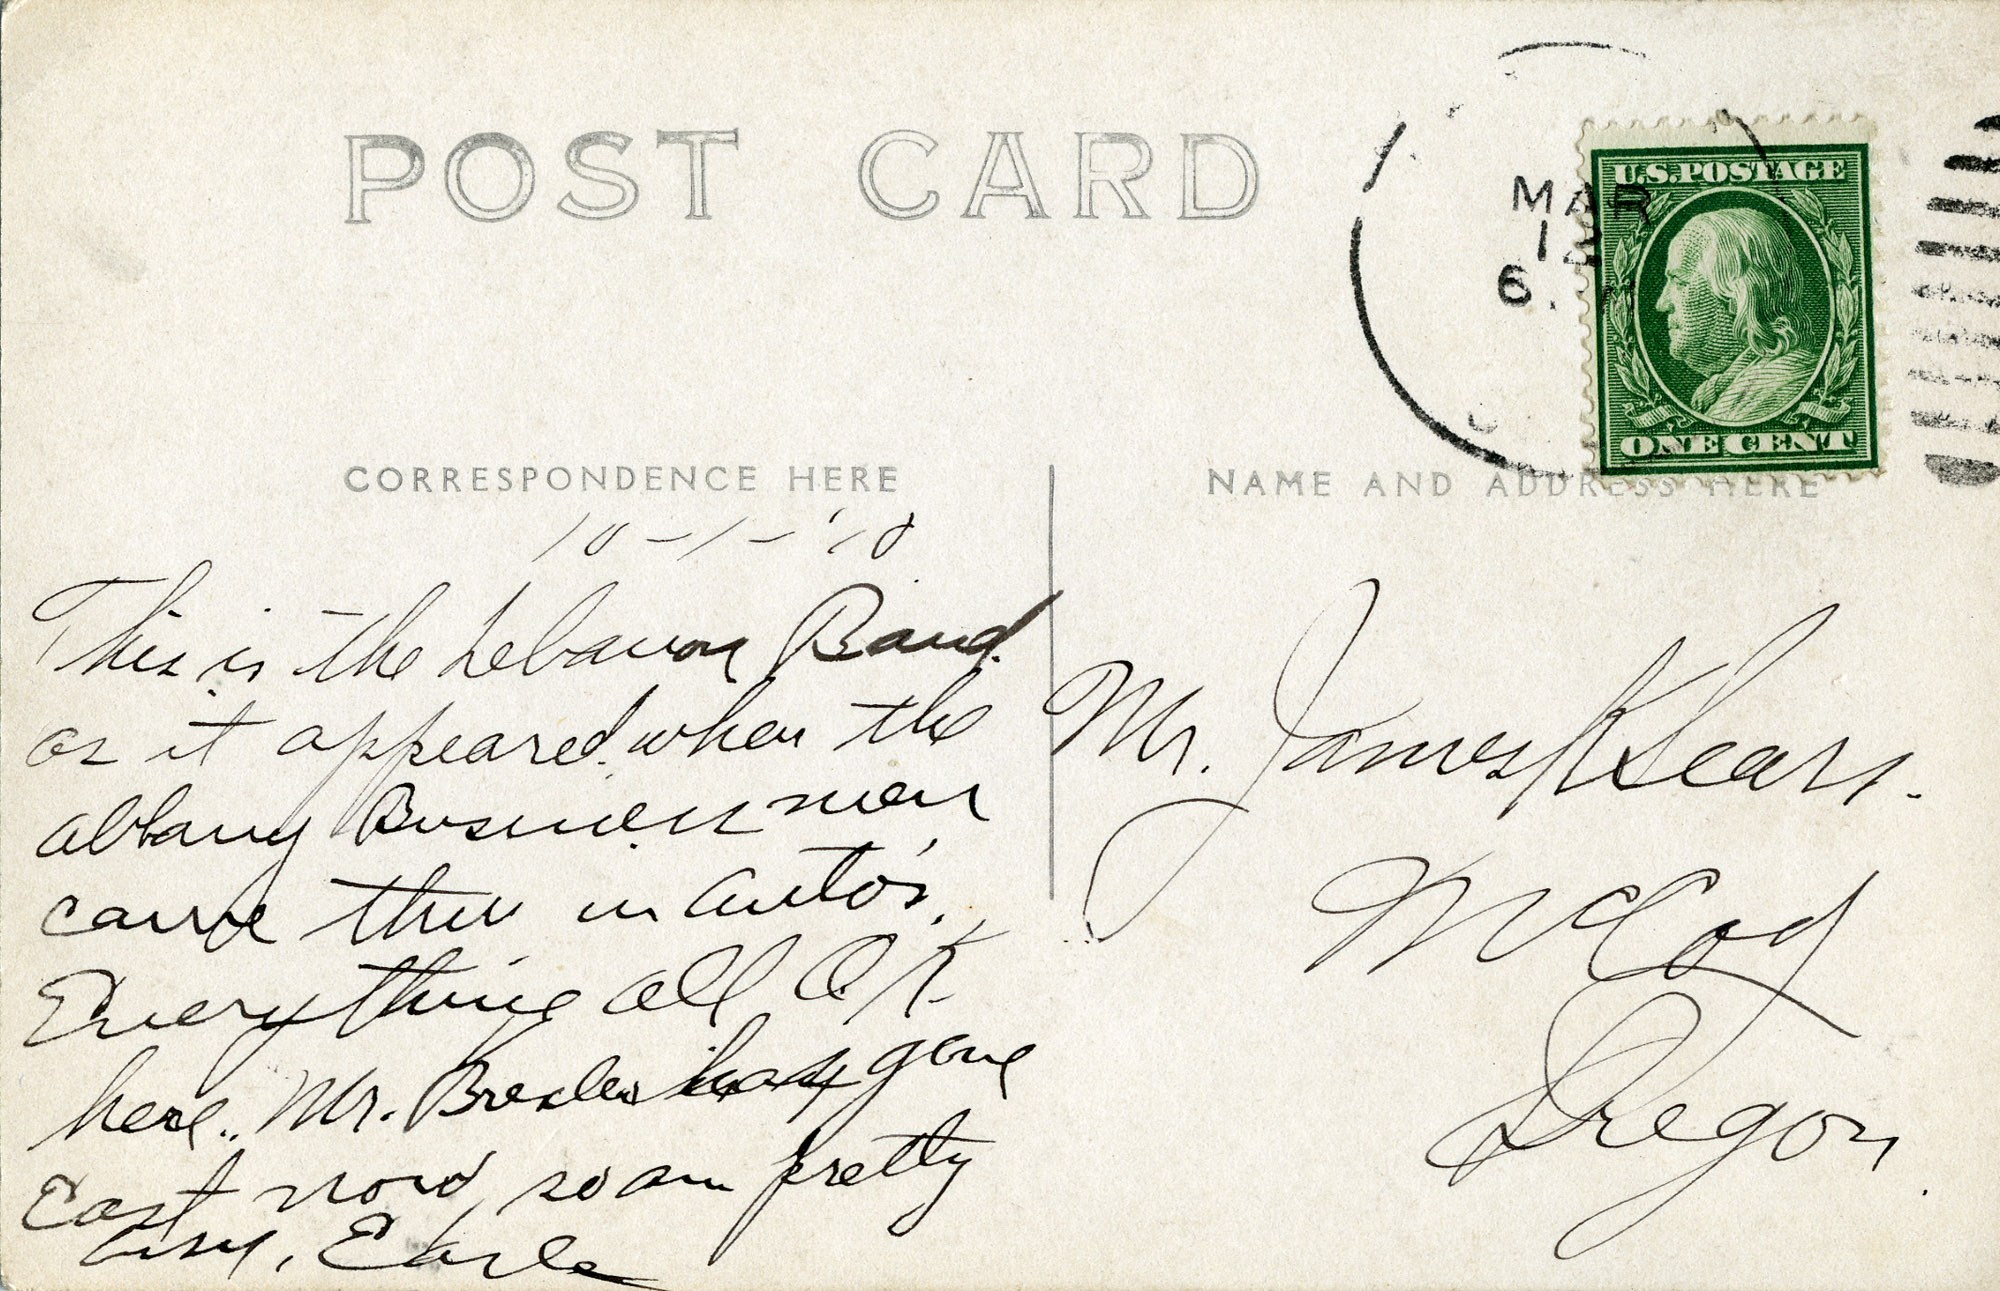 POST CARD
U.S. POSTAGE
MAR
12
6.
ONE CENT
CORRESPONDENCE HERE
NAME AND ADDRESS HERE
10-1-'10
This is the Lebanon Band.
as it appeared when the
Albany Business men
came thru in auto's.
Everything all O.K.
here. Mr. has gone
East now so am pretty
busy. Earle
Mr. James K Sears.
McCoy
Oregon.